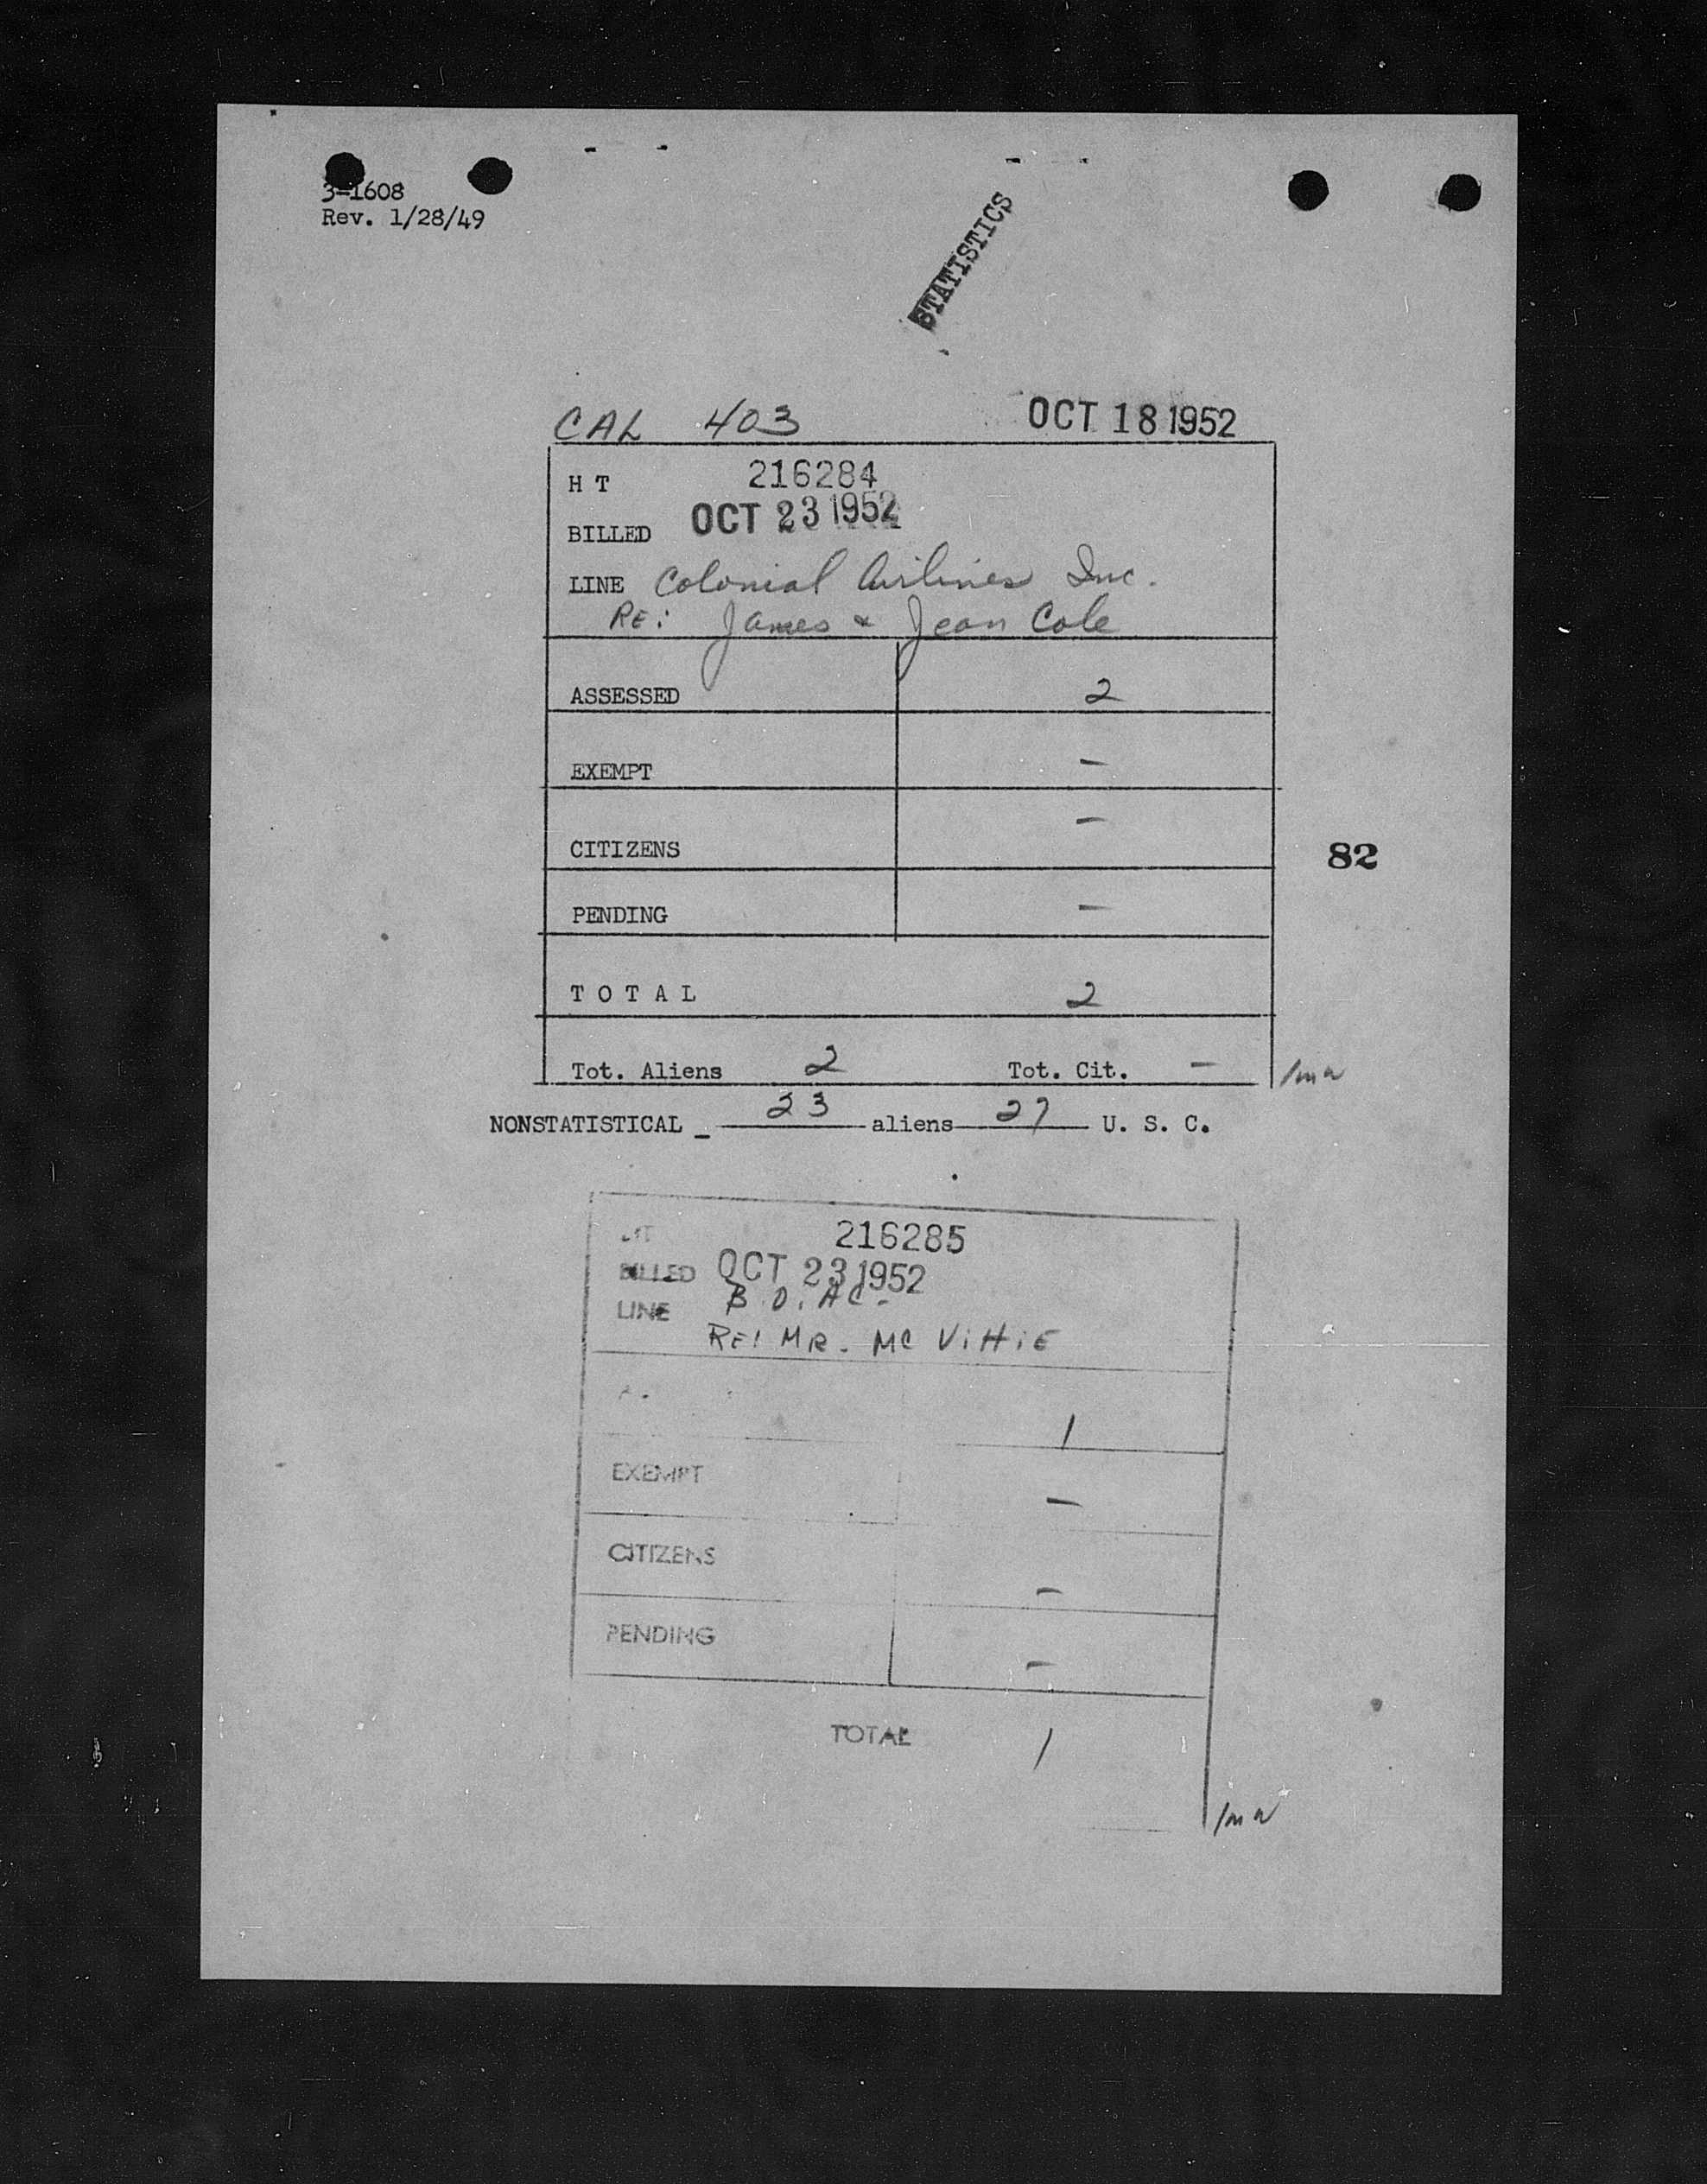 3-1608
Rev. 1/28/49
STATISTICS
CAL 403 OCT 18 1952
H T 216284
BILLED OCT 23 1952
LINE Colonial Airlines Inc.
RE: James & Jean Cole
ASSESSED 2
EXEMPT –
CITIZENS –
82
PENDING –
T O T A L 2
Tot. Aliens 2 Tot. Cit. – /mw
NONSTATISTICAL _ 23 aliens 27 U. S. C.
HT 216285
BILLED OCT 23 1952
LINE B.O.AC.
RE: MR. MC ViHiE
1
EXEMPT –
CITIZENS –
PENDING –
TOTAL 1
/mw